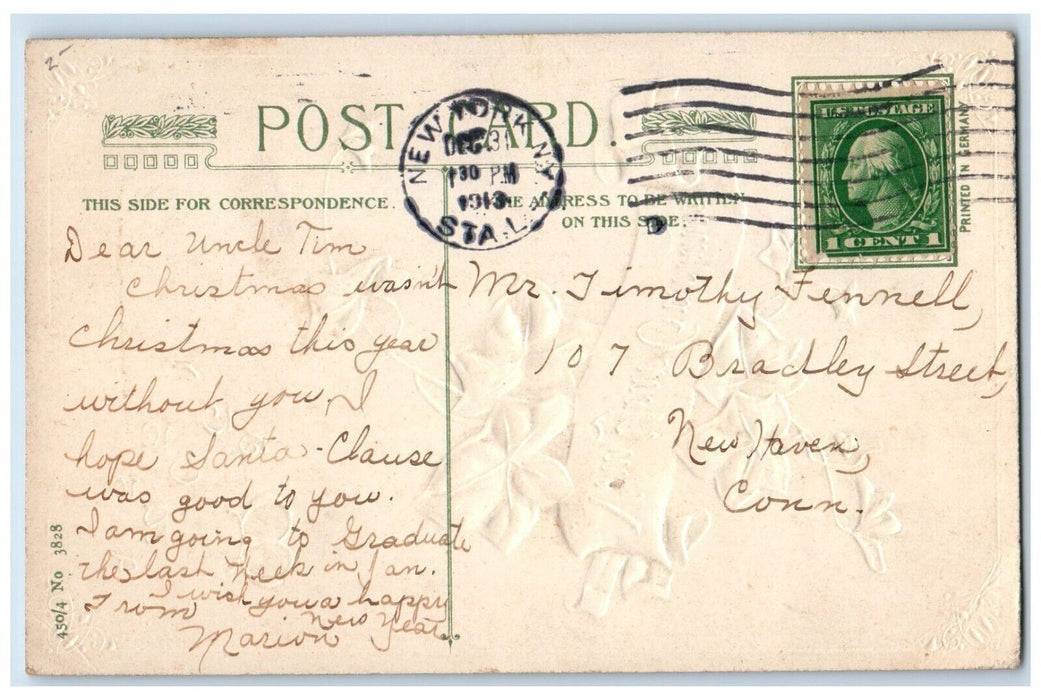 2-
POST CARD.
NEW YORK, N.Y.
DEC 31
1 30 PM
1913
STA. L
U.S. POSTAGE
1 CENT 1
PRINTED IN GERMANY
THIS SIDE FOR CORRESPONDENCE.
THE ADDRESS TO BE WRITTEN
ON THIS SIDE.
D
Dear Uncle Tim
Christmas wasn't
Christmas this year
without you, I
hope Santa-Clause
was good to you.
I am going to Graduate
the last week in Jan.
I wish you a happy
New Year.
From
Marion
Mr. Timothy Fennell,
107 Bradley Street,
New Haven,
Conn.
450/4 No 3828